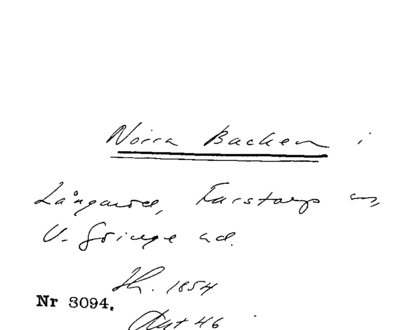 Norra Backen i
Långaröd, Farstorp o,
V. Göinge hd.
Sk. 1854
Nr 3094.
Akt 46